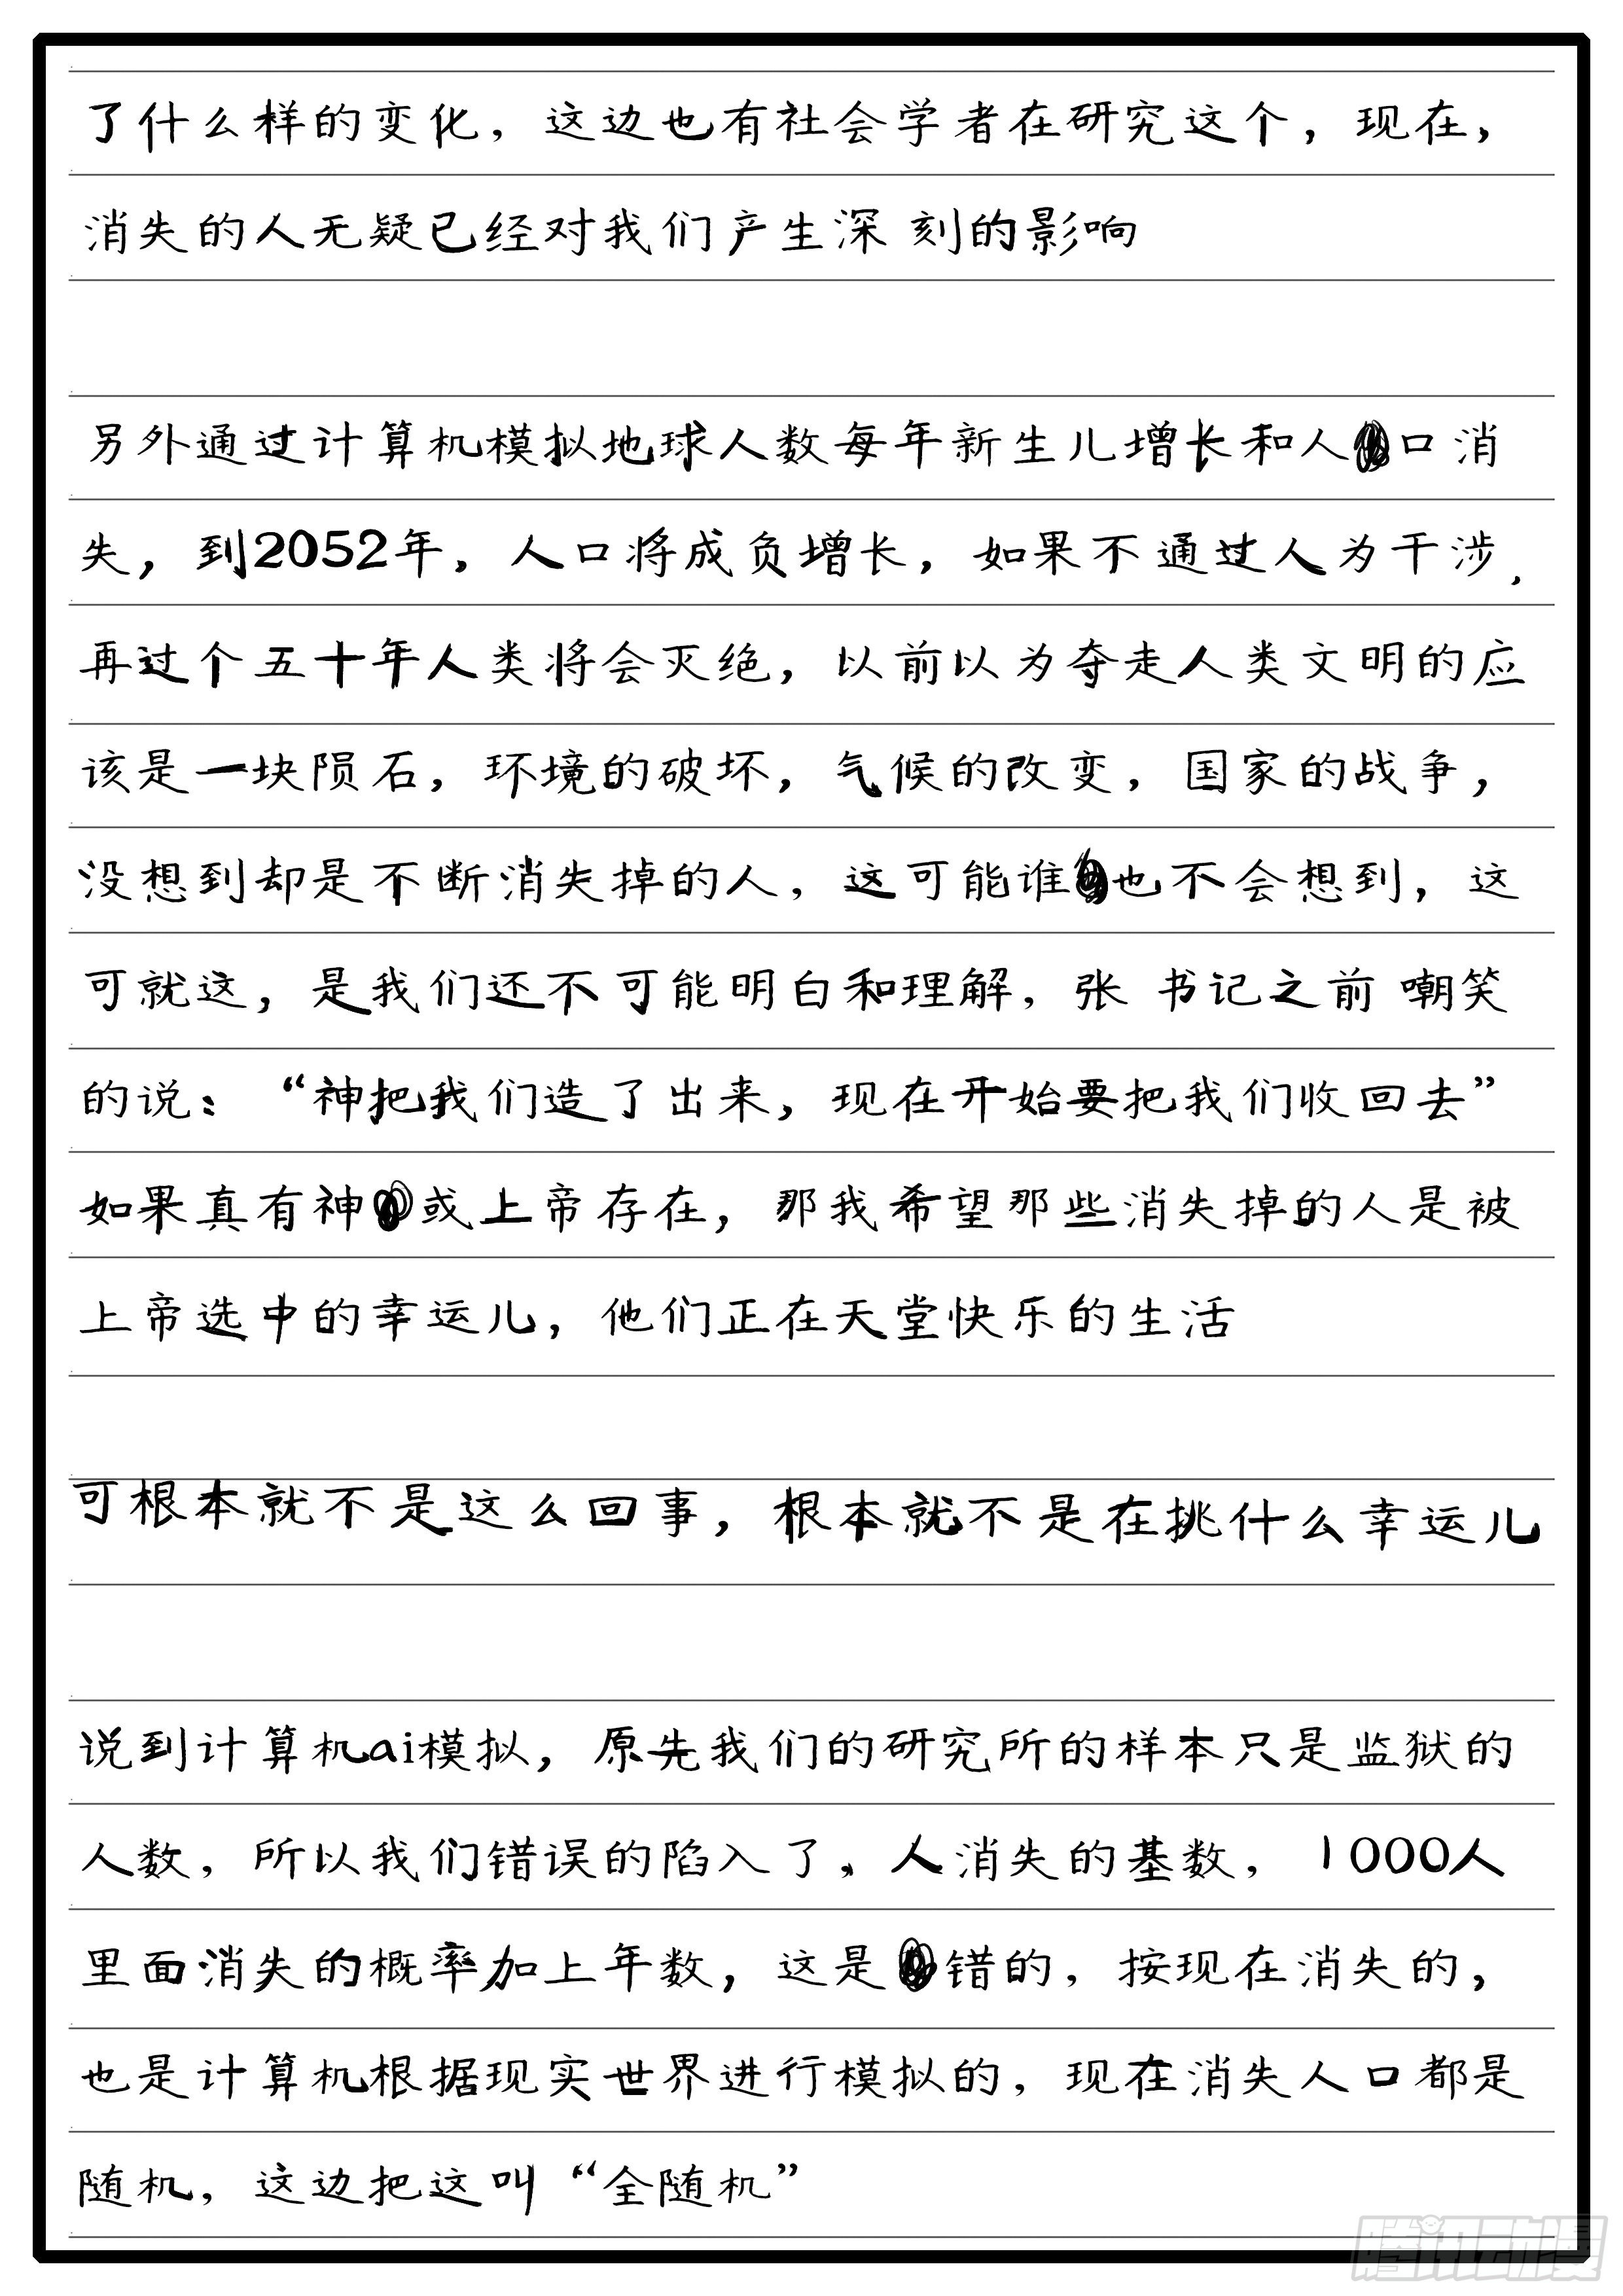 了什么样的变化，这边也有社会学者在研究这个，现在，
消失的人无疑已经对我们产生深刻的影响
另外通过计算机模拟地球人数每年新生儿增长和人口消
失，到2052年，人口将成负增长，如果不通过人为干涉，
再过个五十年人类将会灭绝，以前以为夺走人类文明的应
该是一块陨石，环境的破坏，气候的改变，国家的战争，
没想到却是不断消失掉的人，这可能谁也不会想到，这
可就这，是我们还不可能明白和理解，张书记之前嘲笑
的说：“神把我们造了出来，现在开始要把我们收回去”
如果真有神或上帝存在，那我希望那些消失掉的人是被
上帝选中的幸运儿，他们正在天堂快乐的生活
可根本就不是这么回事，根本就不是在挑什么幸运儿
说到计算机ai模拟，原先我们的研究所的样本只是监狱的
人数，所以我们错误的陷入了、人消失的基数，1000人
里面消失的概率加上年数，这是错的，按现在消失的，
也是计算机根据现实世界进行模拟的，现在消失人口都是
随机，这边把这叫“全随机”
腾讯动漫